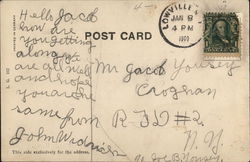 Hello Jacob
how are
you getting
along
are all well
and hope
you are the
same from
John
POST CARD
JAN 8
4 PM
Mr Jacob Yousey
Croghan
R F D #2.
N. Y.
This side exclusively for the address.